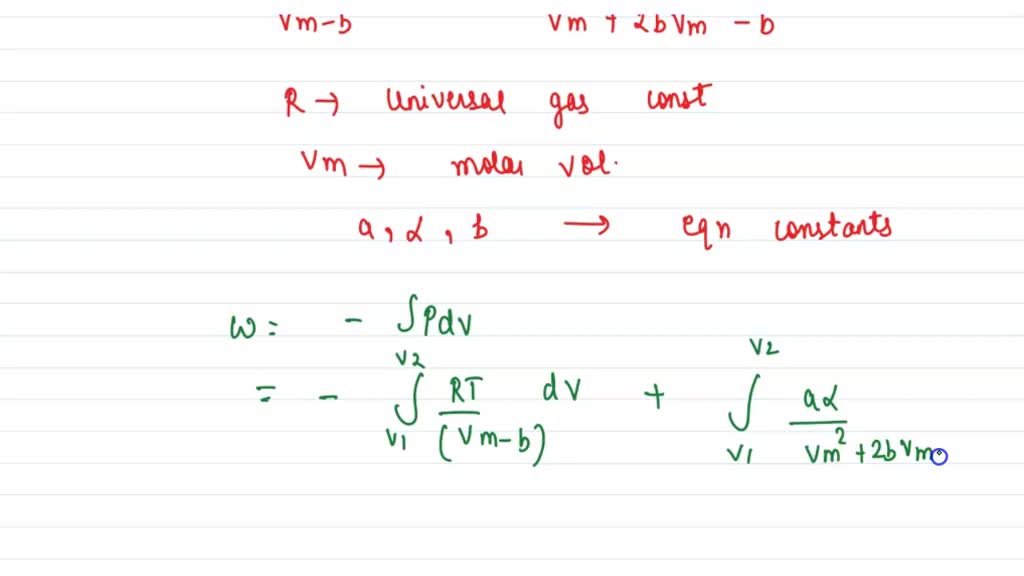 Vm-b Vm + 2bVm - b
R → Universal gas const
Vm → molar vol.
a, α, b → eqn constants
W = - ∫PdV
= - ∫ V1 V2 RT/(Vm-b) dV + ∫ V1 V2 aα/Vm² + 2bVm